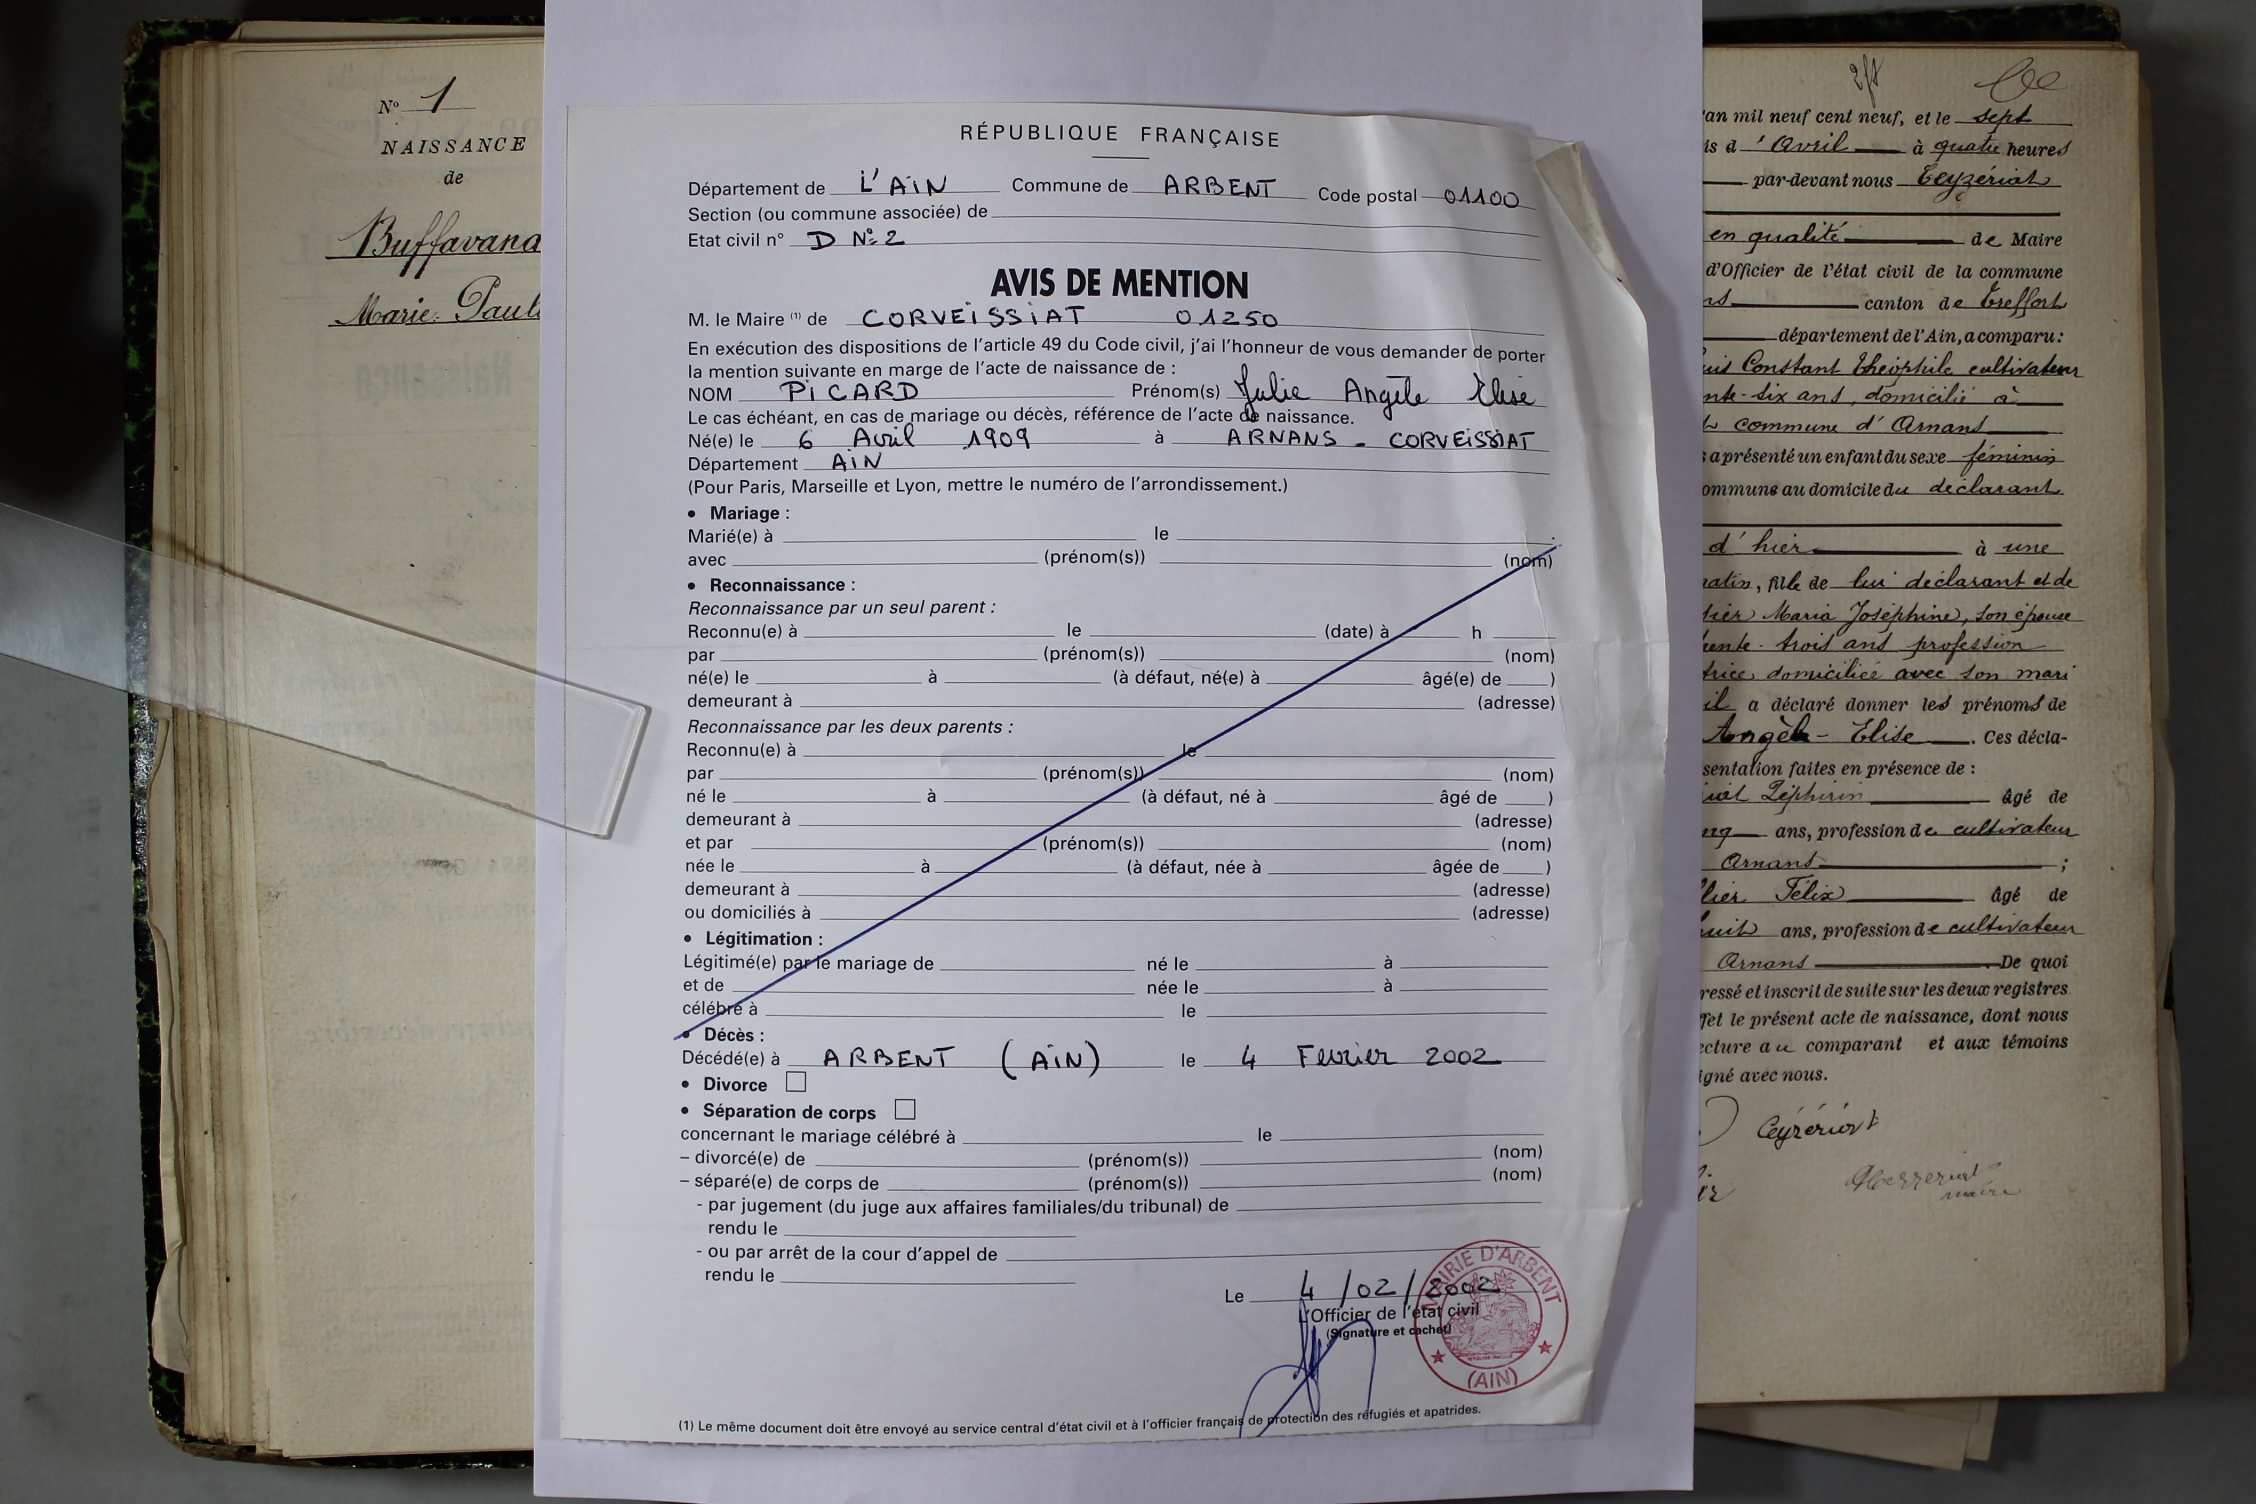 Nº 1
NAISSANCE
de
Buffavand
Marie Paul
RÉPUBLIQUE FRANÇAISE
Département de L'AIN Commune de ARBENT Code postal 01100
Section (ou commune associée) de
Etat civil n° D Nº 2
AVIS DE MENTION
M. le Maire (1) de CORVEISSIAT 01250
En exécution des dispositions de l'article 49 du Code civil, j'ai l'honneur de vous demander de porter
la mention suivante en marge de l'acte de naissance de :
NOM PICARD Prénom(s) Julie Angèle Elise
Le cas échéant, en cas de mariage ou décès, référence de l'acte de naissance.
Né(e) le 6 Avril 1909 à ARNANS - CORVEISSIAT
Département AIN
(Pour Paris, Marseille et Lyon, mettre le numéro de l'arrondissement.)
• Mariage :
Marié(e) à le
avec (prénom(s)) (nom)
• Reconnaissance :
Reconnaissance par un seul parent :
Reconnu(e) à le (date) à h
par (prénom(s)) (nom)
né(e) le à (à défaut, né(e) à âgé(e) de )
demeurant à (adresse)
Reconnaissance par les deux parents :
Reconnu(e) à le
par (prénom(s)) (nom)
né le à (à défaut, né à âgé de )
demeurant à (adresse)
et par (prénom(s)) (nom)
née le à (à défaut, née à âgée de )
demeurant à (adresse)
ou domiciliés à (adresse)
• Légitimation :
Légitimé(e) par le mariage de né le à
et de née le à
célébré à le
• Décès :
Décédé(e) à ARBENT (AIN) le 4 Fevrier 2002
• Divorce
• Séparation de corps
concernant le mariage célébré à le
– divorcé(e) de (prénom(s)) (nom)
– séparé(e) de corps de (prénom(s)) (nom)
- par jugement (du juge aux affaires familiales/du tribunal) de
rendu le
- ou par arrêt de la cour d'appel de
rendu le
Le 4/02/2002
L'Officier de l'état civil
(Signature et cachet)
MAIRIE D'ARBENT
(AIN)
(1) Le même document doit être envoyé au service central d'état civil et à l'officier français de protection des réfugiés et apatrides.
'an mil neuf cent neuf, et le sept
is d'Avril à quatre heures
par-devant nous Ceyzériat
en qualité de Maire
d'Officier de l'état civil de la commune
ns canton de Treffort
département de l'Ain, a comparu :
uis Constant Théophile cultivateur
nte-six ans, domicilié à
commune d'Arnans
a présenté un enfant du sexe féminin
ommune au domicile du déclarant
d'hier à une
matin, fille de lui déclarant et de
lier Maria Joséphine, son épouse
rente-trois ans profession
trice domiciliée avec son mari
il a déclaré donner les prénoms de
Angèle-Elise. Ces décla-
sentation faites en présence de :
iat Zéphirin âgé de
inq ans, profession de cultivateur
Arnans ;
lier Félix âgé de
huit ans, profession de cultivateur
Arnans De quoi
ressé et inscrit de suite sur les deux registres
ffet le présent acte de naissance, dont nous
ecture au comparant et aux témoins
igné avec nous.
Ceyzériat
maire